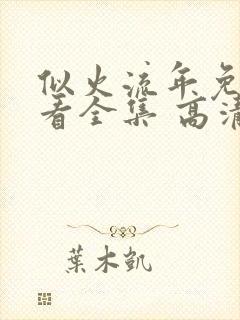 似火流年免
看全集 高清
葉木凱